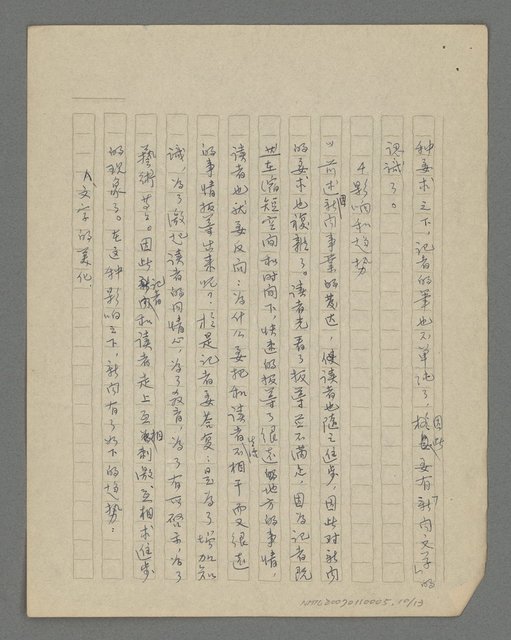 種要求之下，記者的筆也不單純了，因此要有「新聞文學」的
認識了。
4 影响和趋势
1) 前述，因新闻事業的发达，使读者也随之住步，因此对新闻
的要求也複雜了。读者先看了报導並不滿足，因為記者既
在縮短空间和时间下，快速的报導了很遠的地方的事情，
读者也就要反问：為什么要把和读者不相干而又很遠
的事情报導出来呢？於是記者要答复：是為了增加知
識，為了激起读者的同情心，為了教育，為了有所啓示，為了
藝術等等。因此記者和读者走上互相刺激互相求住步
的現象了。在這种影响之下，新闻有了如下的趋势：
A、文字的美化
E1/01.5000011060027WN